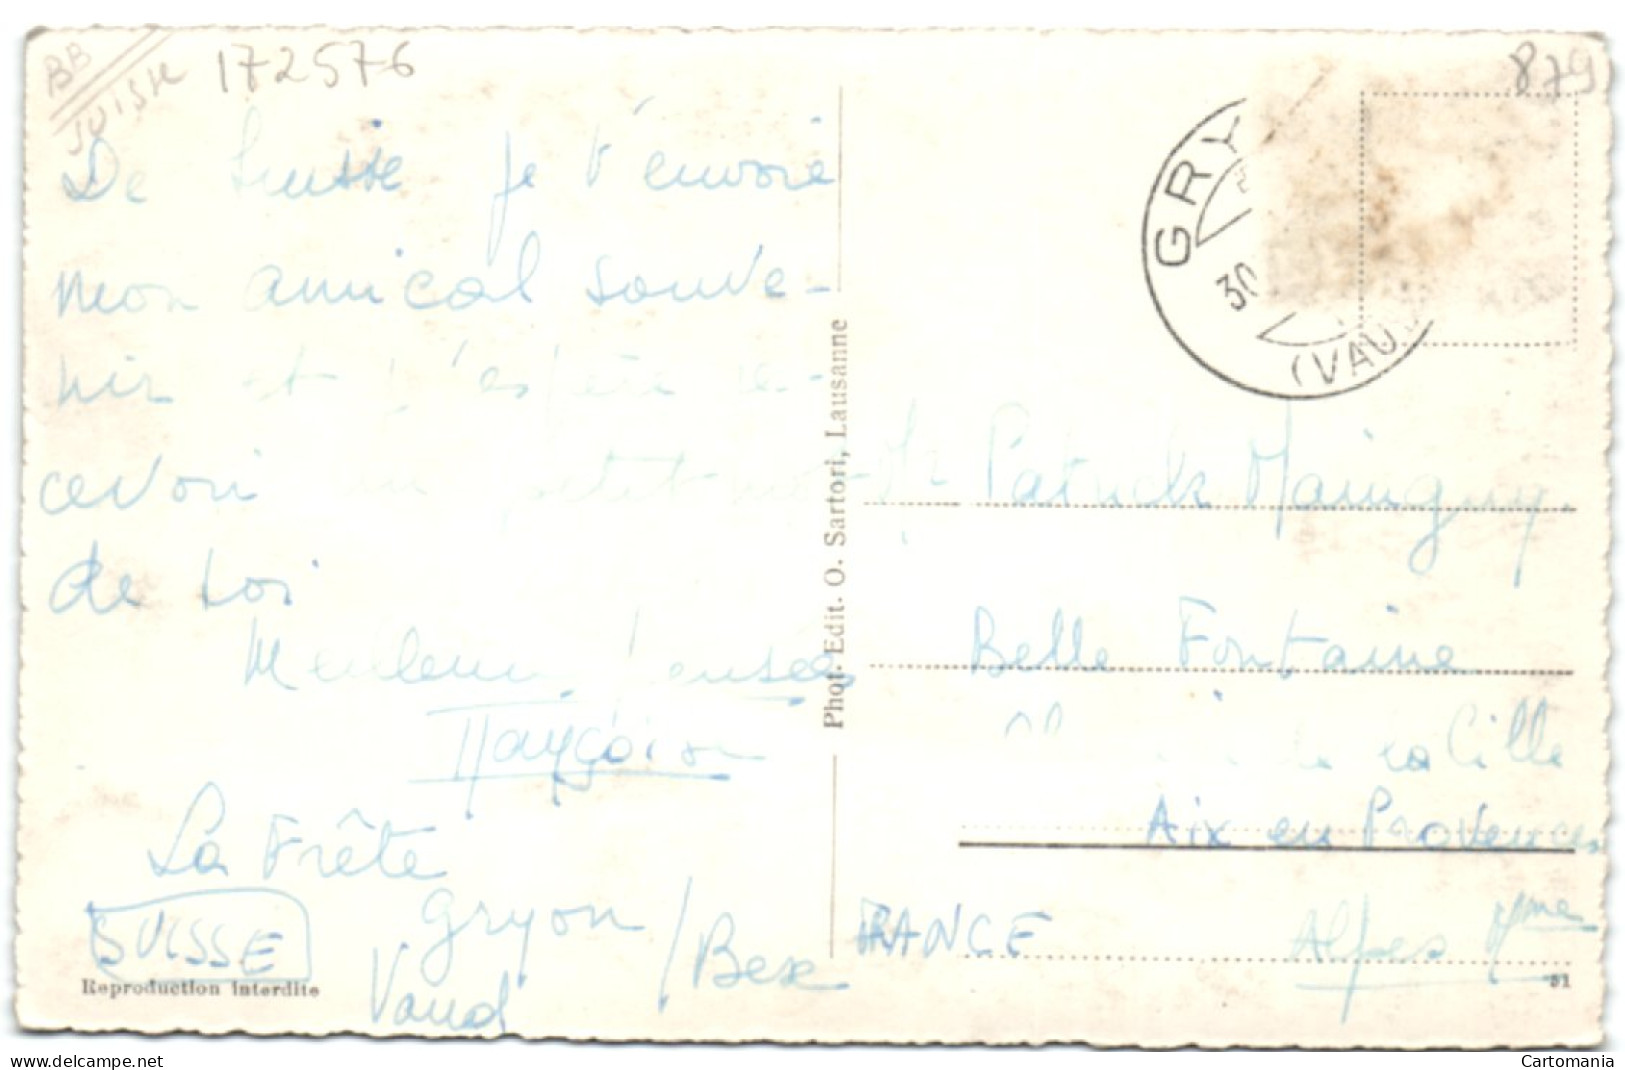 BB
SUISSE
172576
879
De Suisse je t'envoie
mon amical souve-
nir et j'espère re-
cevoir un petit mot
de toi
Meilleures pensées
La Frête
Gryon / Bex
SUISSE
Vaud
Reproduction interdite
Phot. Edit. O. Sartori, Lausanne
GRY
30
(VAU
Mr Patrick Mainguy.
Belle Fontaine
de la Cible
Aix en Provence
FRANCE
Alpes Mme
91
www.delcampe.net
Cartomania